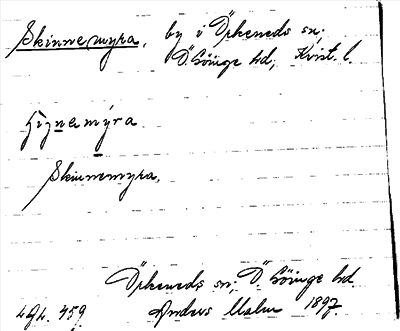 Skinnemyra, by i Örkeneds sn;
Ö. Göinge hd, Krist. l.
Skinnemyra,
Örkeneds sn; Ö. Göinge hd.
Anders Malm 1897.